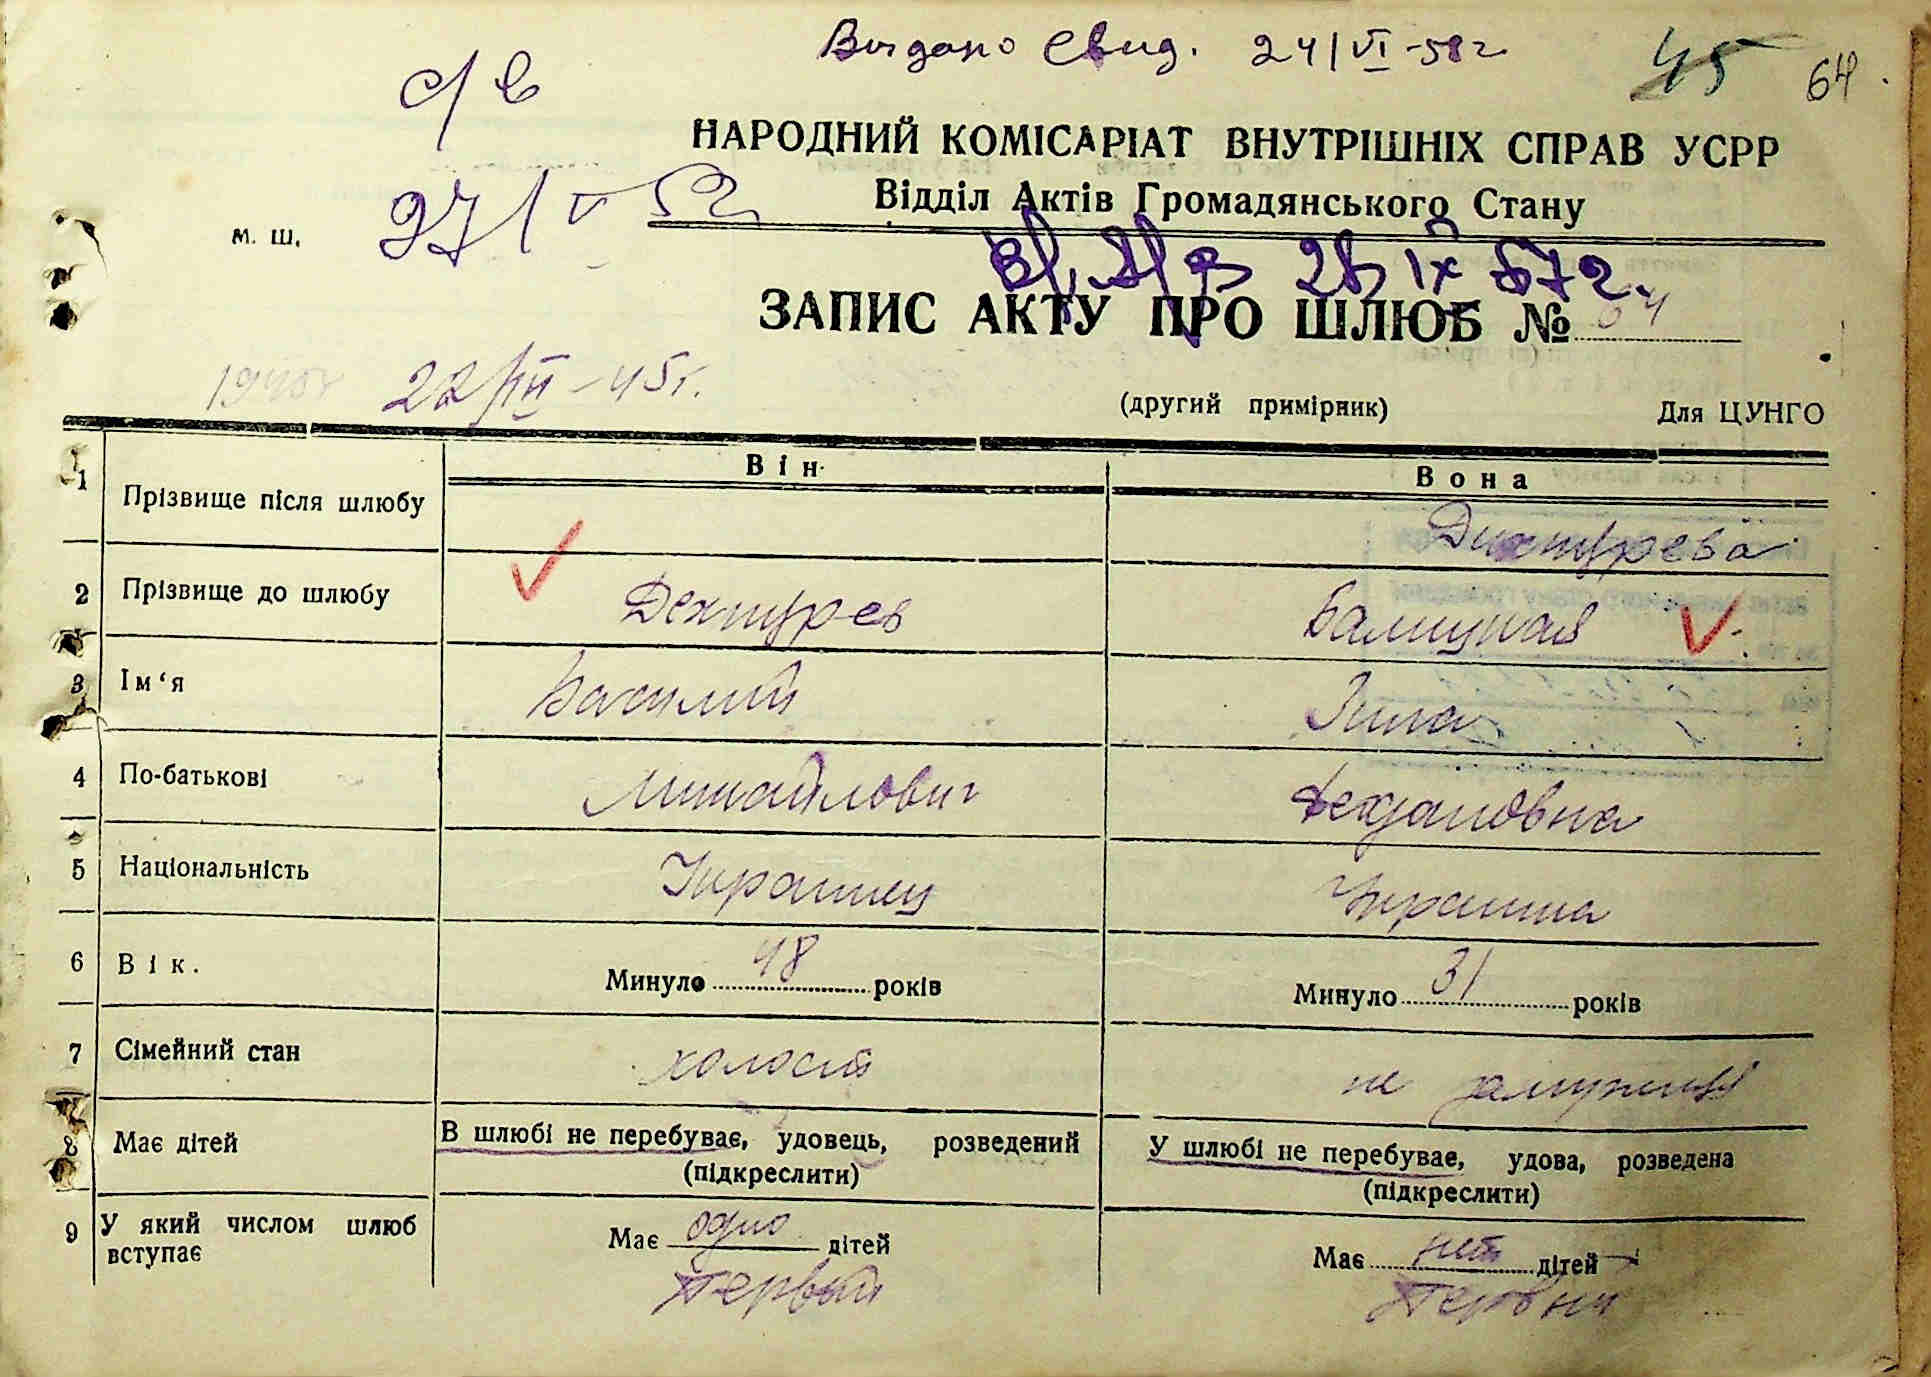 Выдано Свид. 24/VI-58г
45 64.
с/в
НАРОДНИЙ КОМІСАРІАТ ВНУТРІШНІХ СПРАВ УСРР
Відділ Актів Громадянського Стану
м. ш. 27/V 52
28 IX 67г.
ЗАПИС АКТУ ПРО ШЛЮБ № 64
1945г 22/VII-45г.
(другий примірник) Для ЦУНГО
Він Вона
1 Прізвище після шлюбу Дихтурева
2 Прізвище до шлюбу Дехтурев Балицкая
3 Ім'я Василий Зина
4 По-батькові Михайлович
5 Національність Украинец Украинка
6 Вік. Минуло 48 років Минуло 31 років
7 Сімейний стан холост не замужняя
8 Має дітей В шлюбі не перебуває, удовець, розведений У шлюбі не перебуває, удова, розведена
(підкреслити) (підкреслити)
9 У який числом шлюб вступає Має одно дітей Має нет дітей
Первый Первый